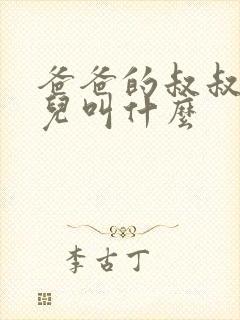 爸爸的叔叔
兒叫什麼
李古丁